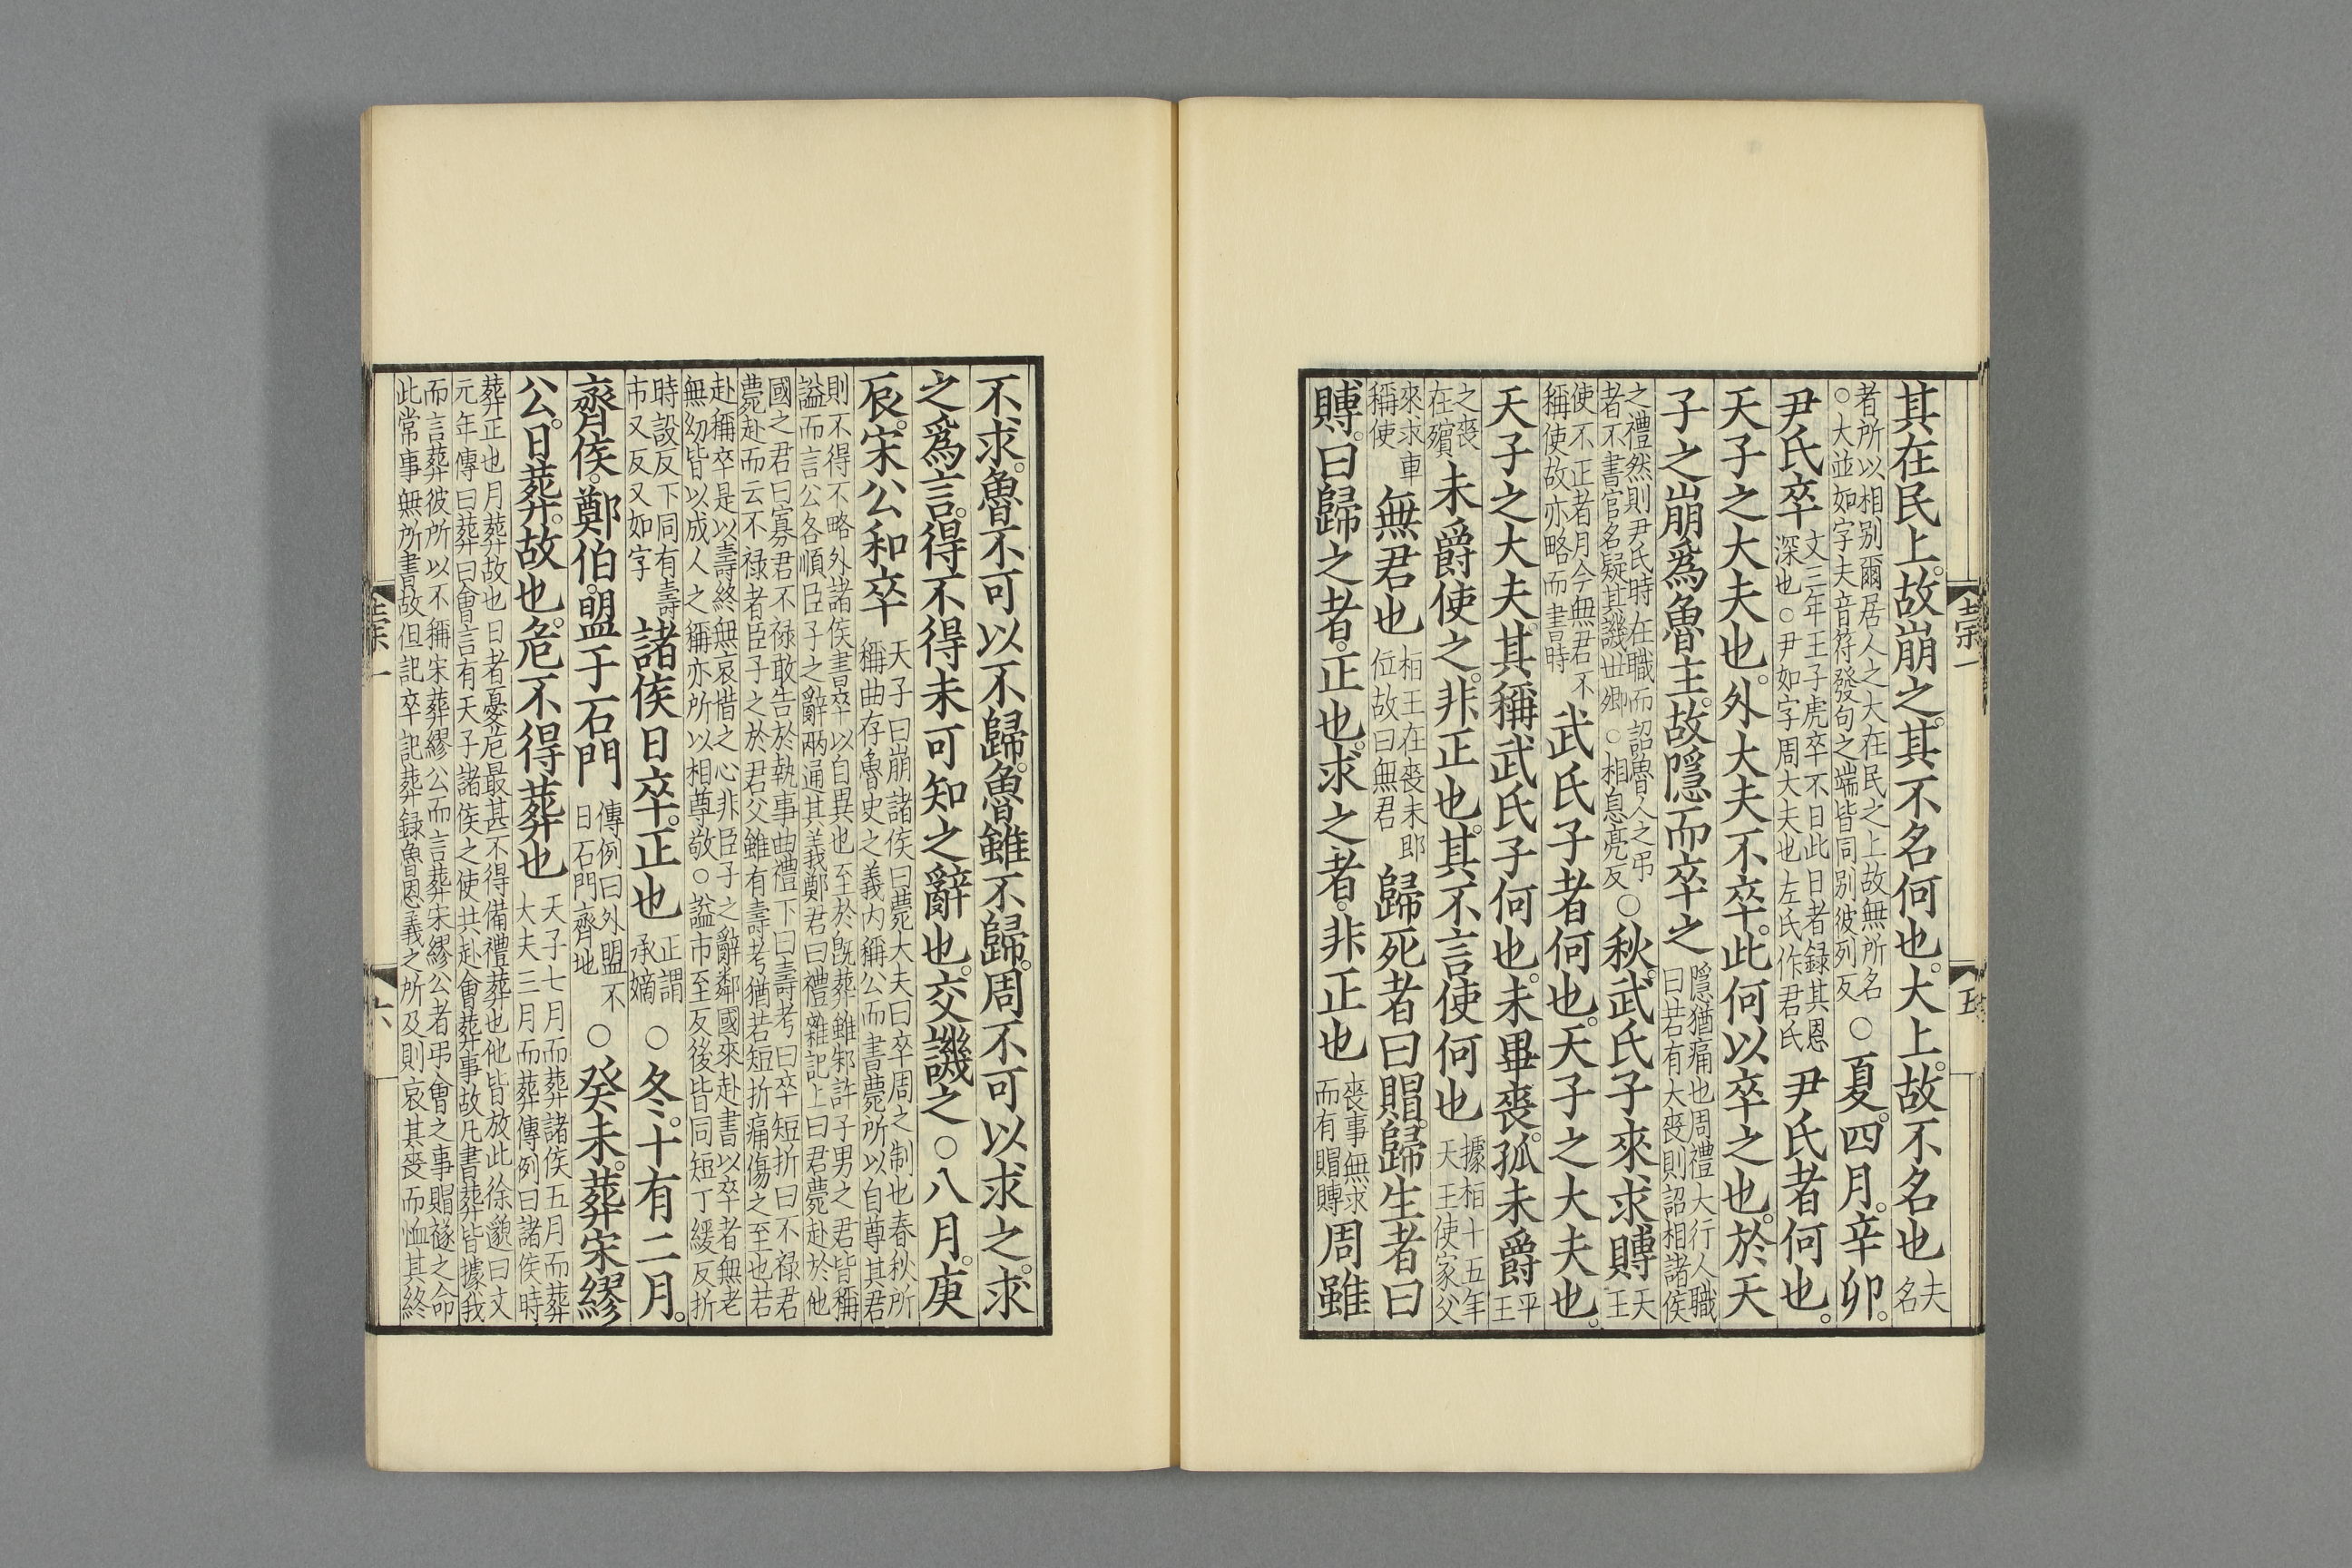 其在民上故崩之其不名何也大上故不名也夫名
者所以相別爾居人之大在民之上故無所名
○大並如字夫音符發句之端皆同別彼列反
○夏四月辛卯
尹氏卒
文三年王子虎卒不日此日者録其恩
深也○尹如字周大夫也左氏作君氏
尹氏者何也
天子之大夫也外大夫不卒此何以卒之也於天
子之崩爲魯主故隱而卒之
隱猶痛也周禮大行人職
曰若有大喪則詔相諸侯
之禮然則尹氏時在職而詔魯人之弔
者不書官名疑其譏世卿○相息亮反
○秋武氏子來求賻
天王
使不正者月今無君不
稱使故亦略而書時
武氏子者何也天子之大夫也
天子之大夫其稱武氏子何也未畢喪孤未爵
平王
之喪
在殯
未爵使之非正也其不言使何也
據桓十五年
天王使家父
來求車
稱使
無君也
桓王在喪未即
位故曰無君
歸死者曰賵歸生者曰
賻曰歸之者正也求之者非正也
喪事無求
而有賵賻
周雖
不求魯不可以不歸魯雖不歸周不可以求之求
之爲言得不得未可知之辭也交譏之○八月庚
辰宋公和卒
天子曰崩諸侯曰薨大夫曰卒周之制也春秋所
稱曲存魯史之義内稱公而書薨所以自尊其君
則不得不略外諸侯書卒以自異也至於旣葬雖邾許子男之君皆稱
謚而言公各順臣子之辭兩通其義鄭君曰禮雜記上曰君薨赴於他
國之君曰寡君不禄敢告於執事曲禮下曰壽考曰卒短折曰不禄君
薨赴而云不禄者臣子之於君父雖有壽考猶若短折痛傷之至也若
赴稱卒是以壽終無哀惜之心非臣子之辭鄰國來赴書以卒者無老
無幼皆以成人之稱亦所以相尊敬○謚市至反後皆同短丁緩反折
時設反下同有壽
市又反又如字
諸侯日卒正也
正謂
承嫡
○冬十有二月
齊侯鄭伯盟于石門
傳例曰外盟不
日石門齊地
○癸未葬宋繆
公日葬故也危不得葬也
天子七月而葬諸侯五月而葬
大夫三月而葬傳例曰諸侯時
葬正也月葬故也日者憂危最甚不得備禮葬也他皆放此徐邈曰文
元年傳曰葬曰會言有天子諸侯之使共赴會葬事故凡書葬皆據我
而言葬彼所以不稱宋葬繆公而言葬宋繆公者弔會之事賵襚之命
此常事無所書故但記卒記葬録魯恩義之所及則哀其喪而恤其終
六
五